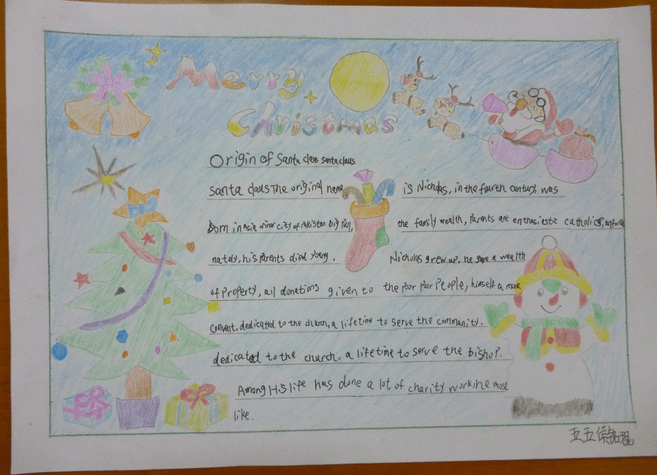 Merry
Christmas
Origin of Santa claus santa claus
santa claus The original name is Nicholas, in the fourth century was
Born in Asia minor city of the family wealth, parents are enthusiastic catholics,
nately, his parents died young. Nicholas grew up, he gave a wealth
of Property, all donations given to the Poor Poor People, himself a more
Convent, dedicated to the church, a lifetime to serve the community.
dedicated to the church, a lifetime to serve the bishop.
Among His life has done a lot of charity work he most
like.
五五